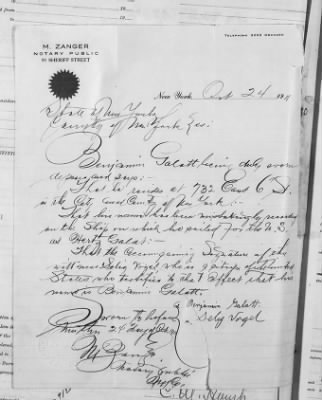 TELEPHONE 2292 ORCHARD
M. ZANGER
NOTARY PUBLIC
91 SHERIFF STREET
New York, Oct 24 1911
State of New York
County of New York ss:
Benjamin Galatt, being duly sworn
deposes and says:
That he resides at 732 East 6 St.
in the City and County of New York:-
That his name has been mistakingly recorded
on the Ship on which he sailed for the U.S.
as Hertz Galat:-
That the accompanying Signature of the
witness Selig Vogel, who is a citizen of the United
States, who testifies to the Effect that his
name is Benjamin Galatt.
Sworn to before
me this 24 day of Oct 1911
Benjamin Galatt
Selig Vogel
M. Zanger
Notary Public
N.Y. Co.